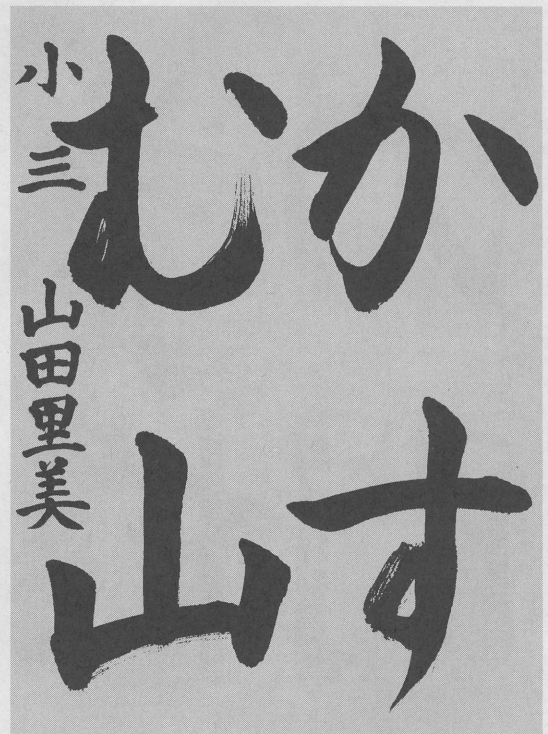 かす
む山
小三 山田里美